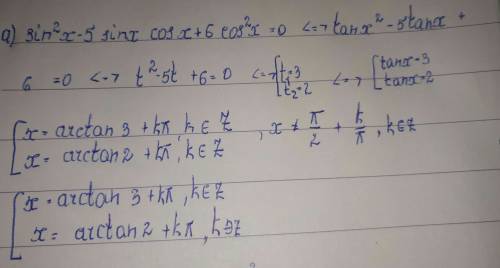 а) sin²x-5 sinx cosx+6 cos²x=0 <=> tanx²-5tanx +
6 =0 <=> t²-5t +6=0 <=> [t₁=3 t₂=2 <=> [tanx=3 tanx=2
[x = arctan 3 + kπ, k ∈ Z
x = arctan 2 + kπ, k ∈ Z , x ≠ π/2 + k/π, k∈Z
[x = arctan 3 + kπ, k∈Z
x = arctan 2 + kπ, k∋Z